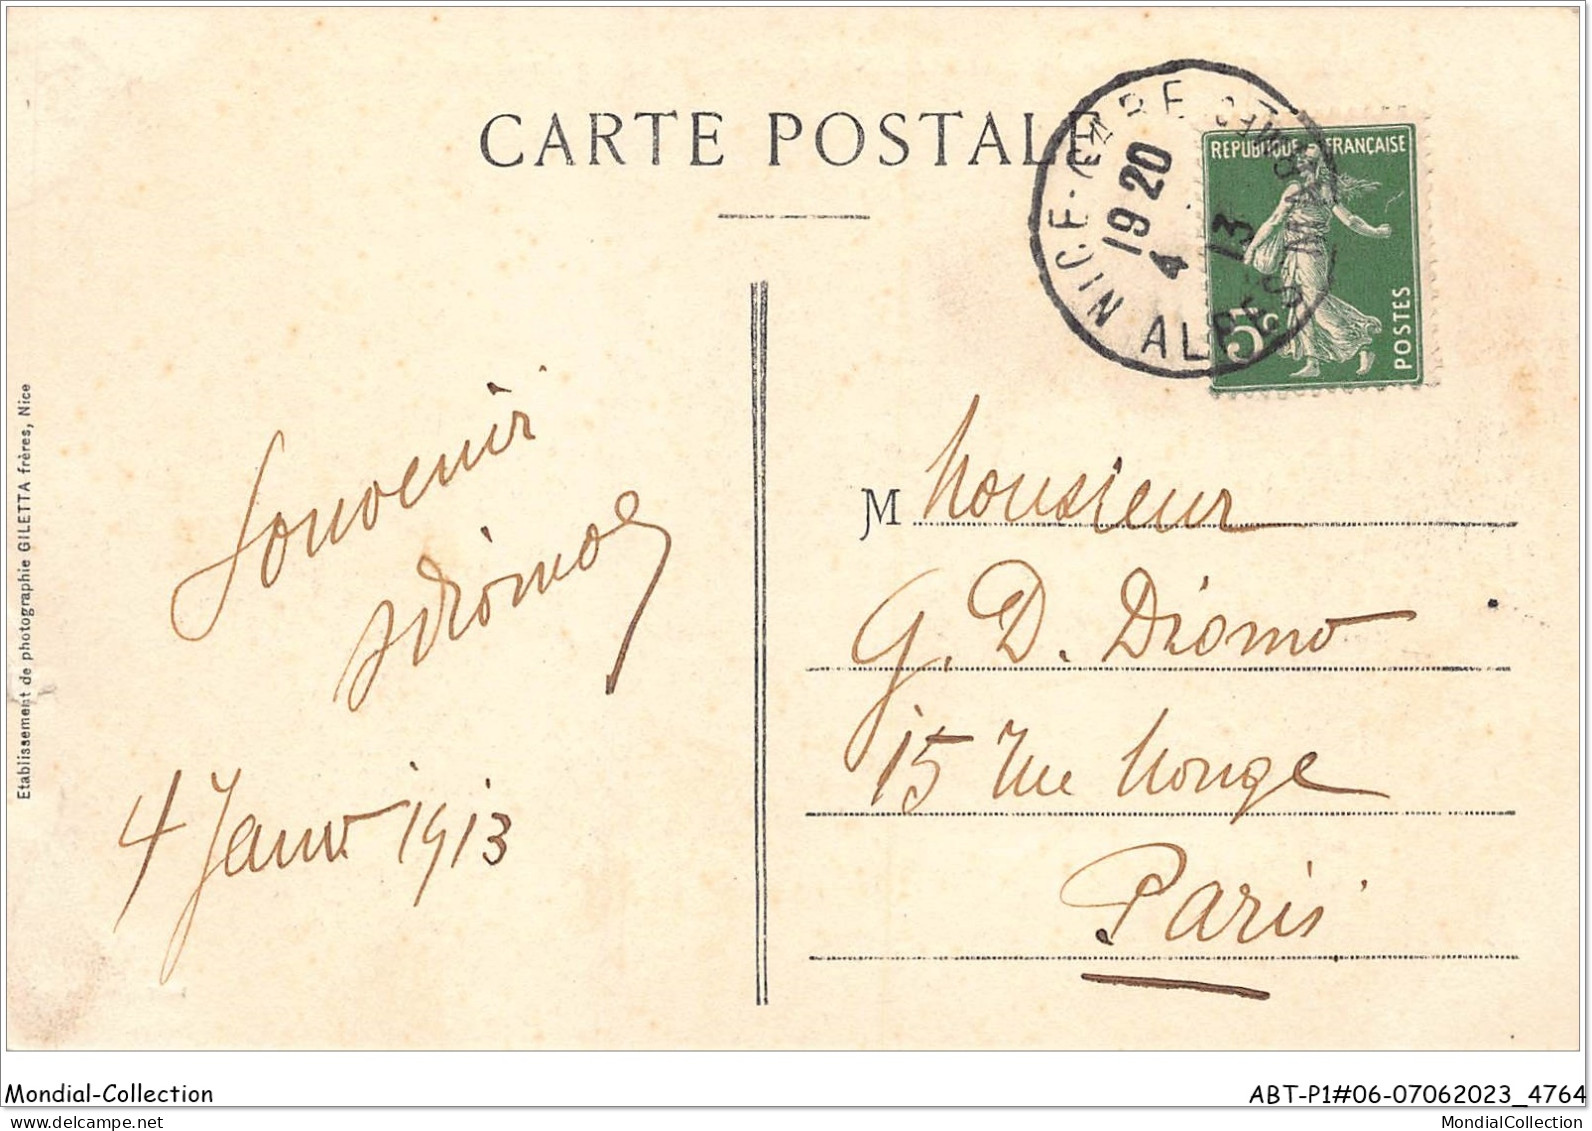 CARTE POSTALE
NICE-GARE
19 20
4 13
ALPES MMES
REPUBLIQUE FRANÇAISE
5c
POSTES
Etablissement de photographie GILETTA frères, Nice
Souvenir
4 Janv 1913
M Monsieur
G. D. Diomo
15 Rue Monge
Paris
Mondial-Collection
ABT-P1#06-07062023_4764
MondialCollection